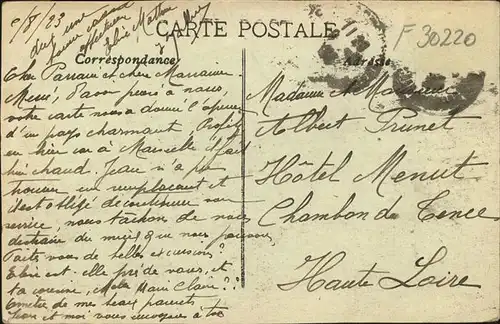 9/8/23
CARTE POSTALE
F 30220
Correspondance
Adresse
Cher Parrain et chère Marraine
Merci, d'avoir pensé à nous,
votre carte nous a donné l'aperçu
d'un pays charmant,
en hier car à Marseille il fait
bien chaud. Jean n'a pu
trouver un remplaçant et
il est obligé de continuer son
service, nous tachons de nous
distraire du mieux que nous pouvons
Faites vous de belles excursions?
Elise est-elle près de vous, et
ta cousine, Marie Claire?
de me
Jean et moi vous envoyons à tous
Madame et Monsieur
Albert Prunet
Hôtel Menut
Chambon de Tence
Haute Loire